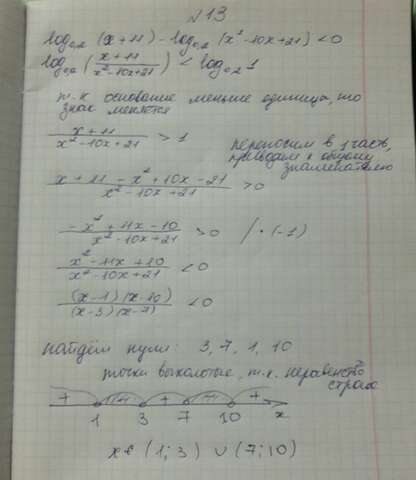 №13
log₀,₂ (x+11) - log₀,₂ (x²-10x+21) < 0
log₀,₂ (x+11 / x²-10x+21) < log₀,₂ 1
т-к основание меньше единица, то
знак меняется
x+11 / x²-10x+21 > 1
переносим в 1 часть,
приводам к общему
знаменателю
x+11-x²+10x-21 / x²-10x+21 > 0
-x²+11x-10 / x²-10x+21 > 0 / · (-1)
x²-11x+10 / x²-10x+21 < 0
(x-1)(x-10) / (x-3)(x-7) < 0
найдём нули: 3, 7, 1, 10
точки выколотые, т.к. неравенство
строгое
+ + +
1 3 7 10 x
x ∈ (1;3) ∪ (7;10)